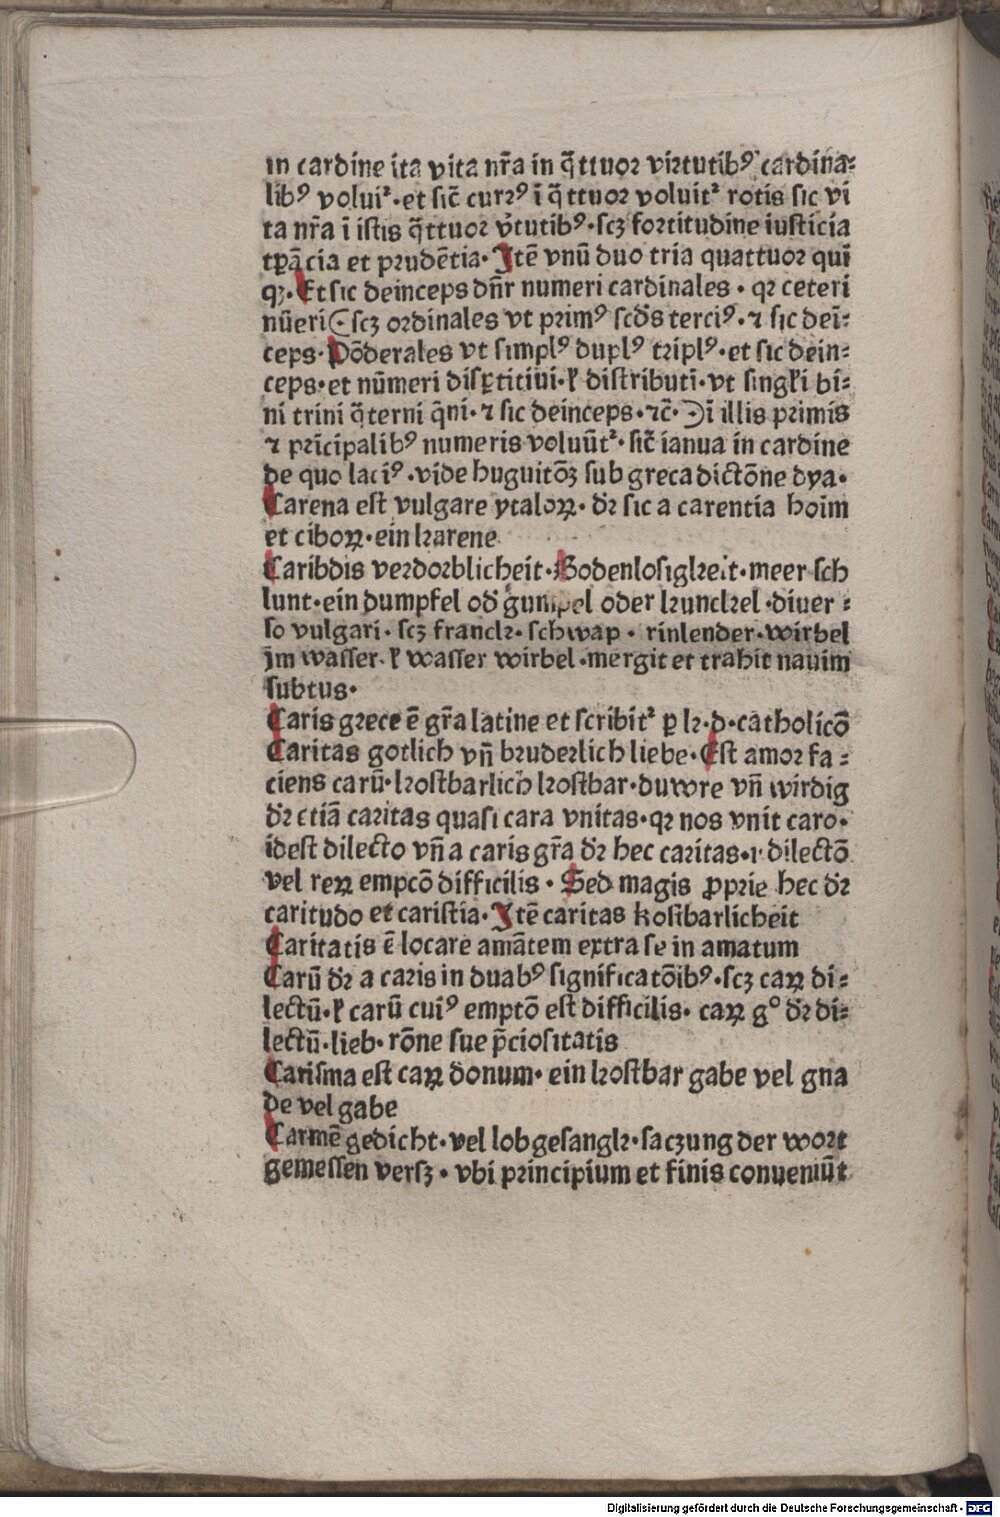 in cardine ita vita nr̄a in q̄ttuor virtutibꝰ cardina⸗
libꝰ voluiᷣ·et sic̄ currꝰ ī q̄ttuor voluitᷣ rotis sic vi
ta nr̄a ī istis q̄ttuor v̓tutibꝰ·scʒ fortitudine iusticia
tꝑācia et prudētia·Jtē vnū duo tria quattuor quī
qʒ·Et sic deinceps dn̄r numeri cardinales·qꝛ ceteri
nūeri scʒ ordinales vt primꝰ scd̄s terciꝰ·⁊ sic deī⸗
ceps·Pōderales vt simplꝰ duplꝰ triplꝰ·et sic dein⸗
ceps·et nūmeri disꝑtitiui·ł distributī·vt singłi bi⸗
ni trini q̄terni q̄ni·⁊ sic deinceps·⁊c̄· Dī illis primis
⁊ prīcipalibꝰ numeris voluūtᷣ·sic̄ ianua in cardine
de quo laciꝰ·vide huguitōʒ sub greca dictōne dya·
Carena est vulgare ytaloꝝ·dꝛ̄ sic a carentia hoīm
et ciboꝝ·ein karene
Caribdis verdorblicheit·Bodenlosigkeit·meer sch
lunt·ein dumpfel od̓ gumpel oder kunckel·diuer⸗
so vulgari·scʒ franck·schwap·rinlender·wirbel
jm wasser·ł wasser wirbel·mergit et trahit nauim
subtus·
Caris grece ē gr̄a latine et scribitᷣ ꝑ k·d·catholicō
Caritas gotlich vn̄ bruderlich liebe·Est amor fa⸗
ciens carū·kostbarlich kostbar·duwre vn̄ wirdig
dꝛ̄ etiā caritas quasi cara vnitas·qꝛ nos vnit caro·
idest dilecto vn̄ a caris gr̄a dꝛ̄ hec caritas·i·dilectō
vel reꝝ empcō difficilis·Sed magis ꝓprie hec dꝛ̄
caritudo et caristia·Jtē caritas kostbarlicheit
Caritatis ē locare amātem extra se in amatum
Carū dꝛ̄ a caris in duabꝰ significatōibꝰ·scʒ caꝝ di⸗
lectū·ł carū cuiꝰ emptō est difficilis·caꝝ g° dꝛ̄ di⸗
lectū·lieb·rōne sue p̄ciositatis
Carisma est caꝝ donum·ein kostbar gabe vel gna
de vel gabe
Carmē gedicht·vel lobgesangk·saczung der wort
gemessen versʒ·vbi principium et finis conueniūt
Digitalisierung gefördert durch die Deutsche Forschungsgemeinschaft - DFG